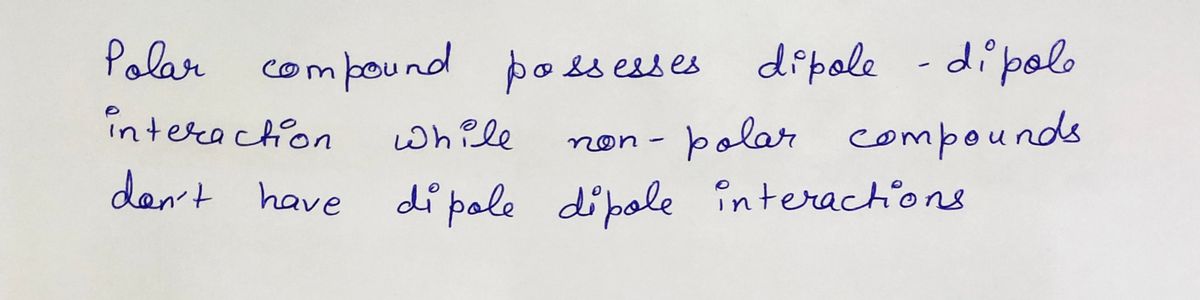 Polar compound possesses dipole - dipole
interaction while non - polar compounds
don't have dipole dipole interactions